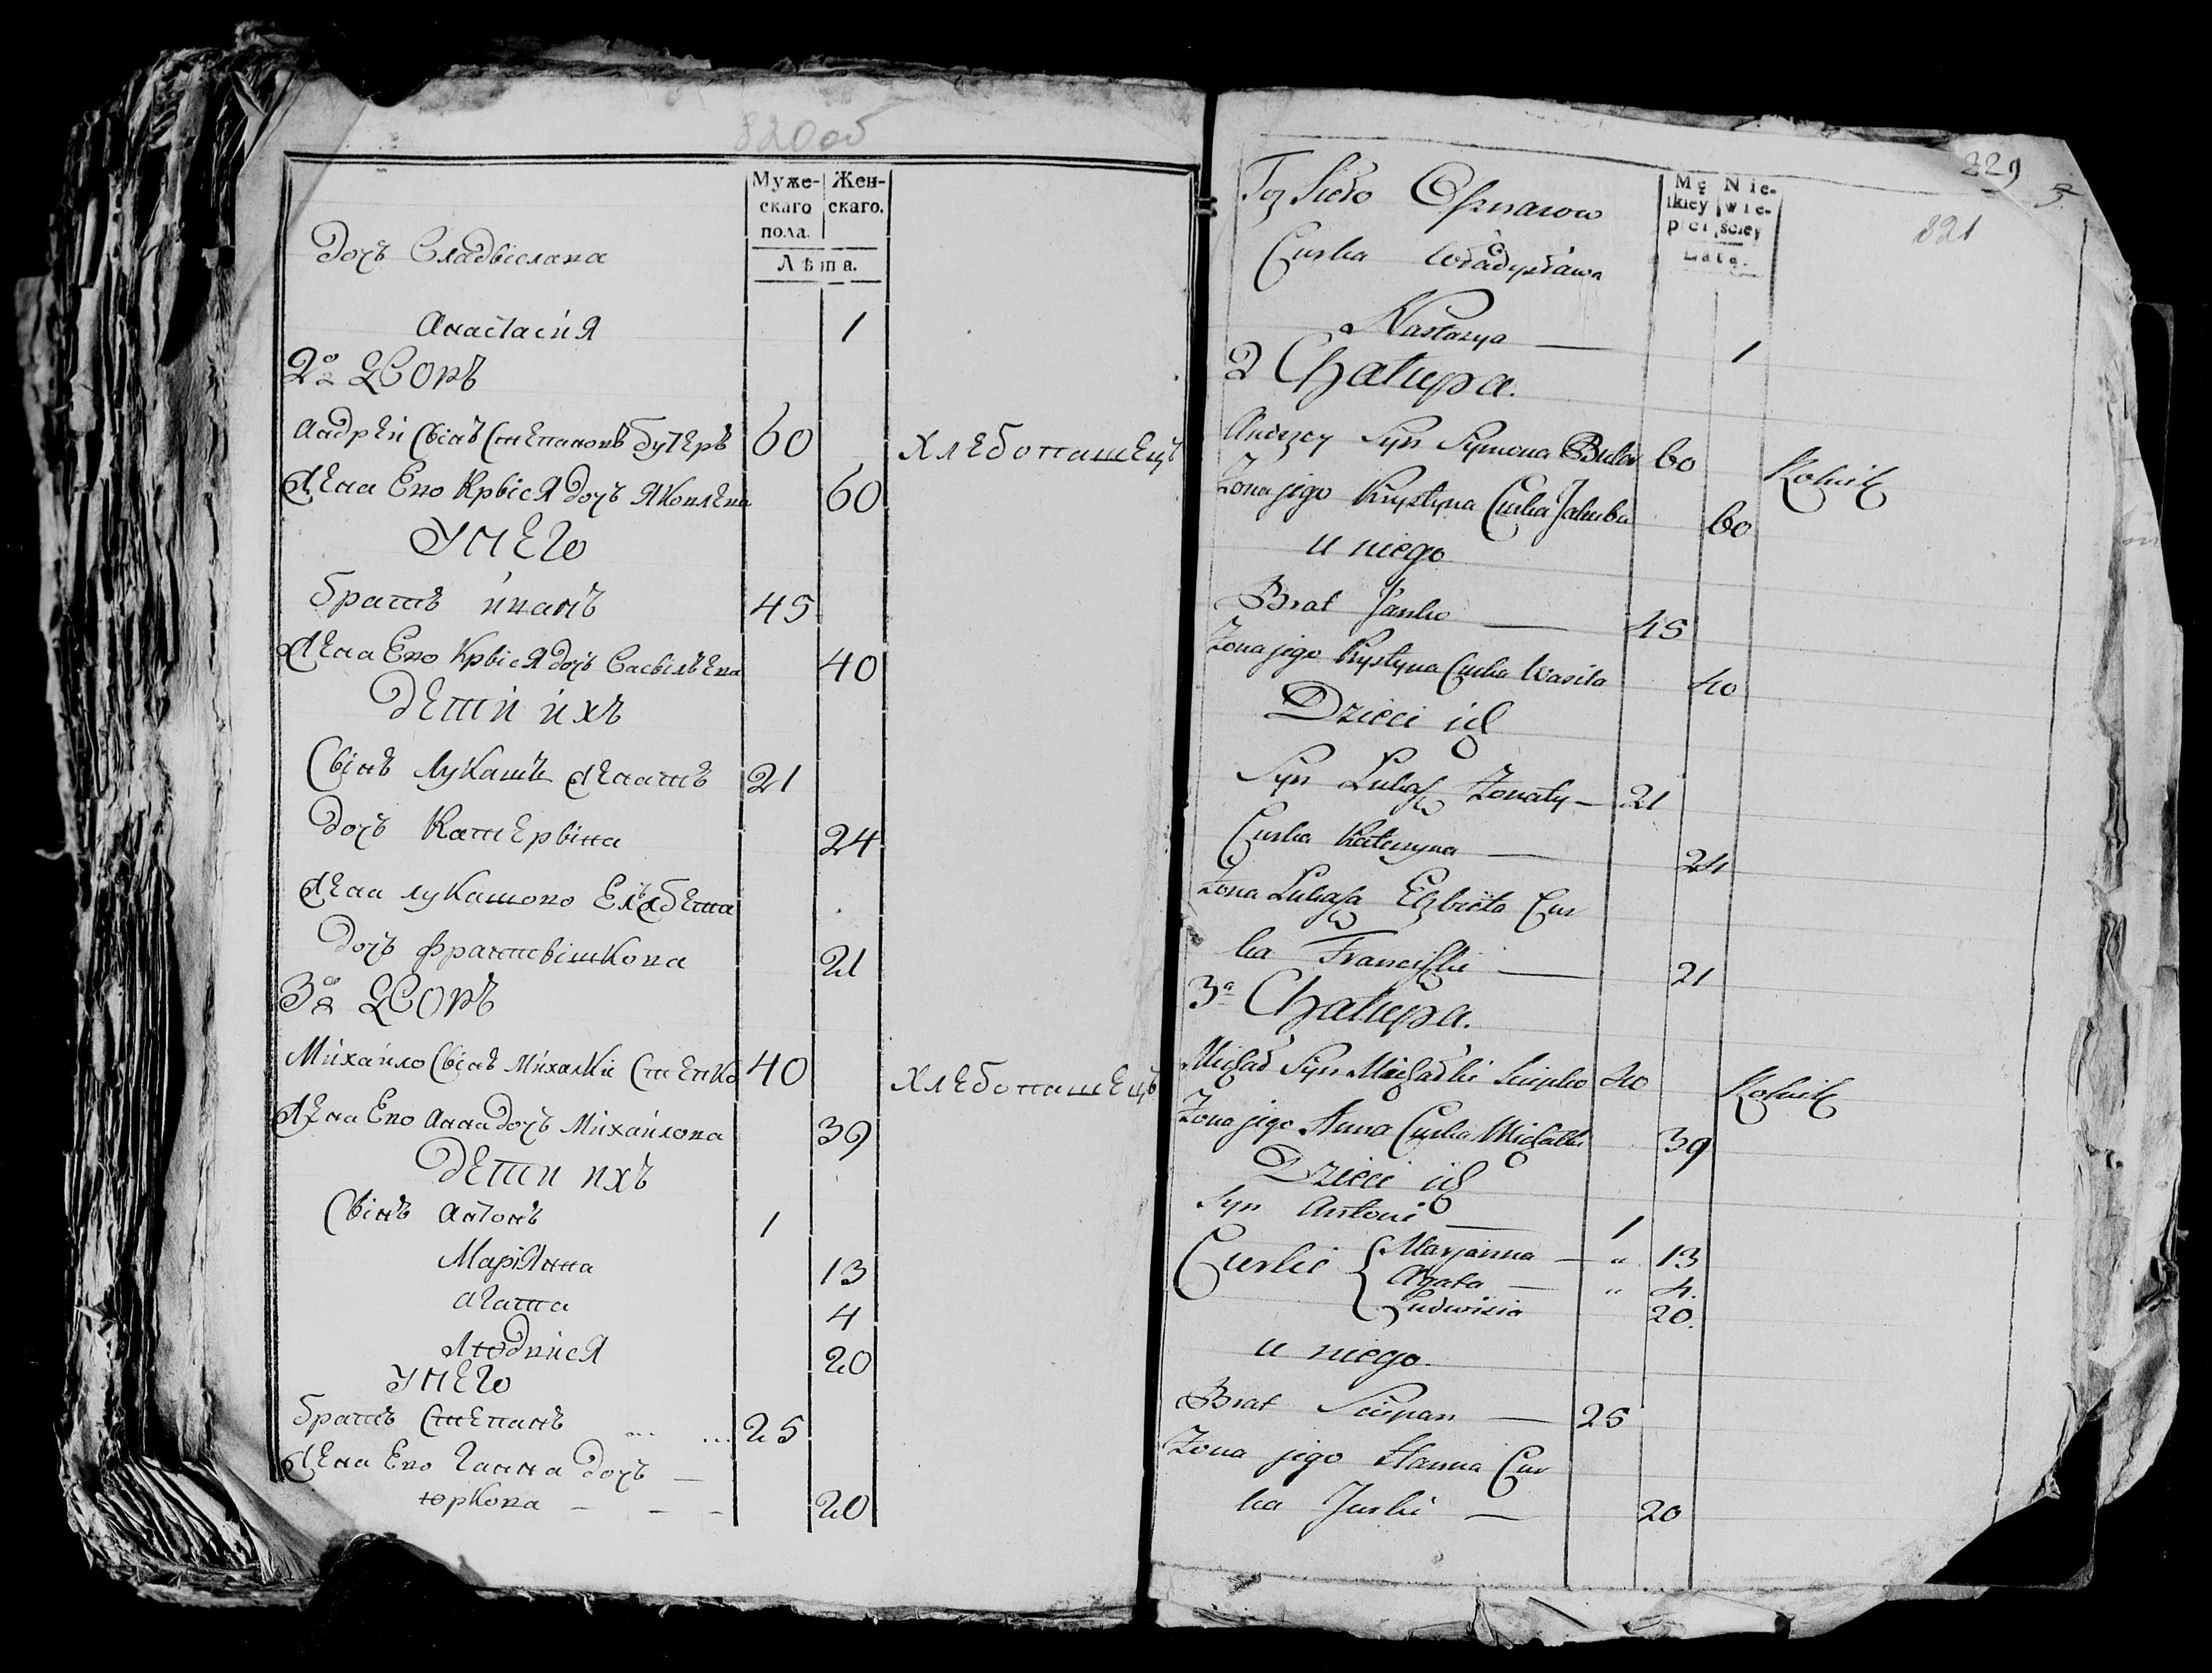 320об
Муже- Жен-
скаго скаго.
пола.
Лѣта.
дочъ Владвіслава
Анастасія 1
2й двОРЪ
Андрей Свінъ Степановъ бутеръ 60 хлебопашецъ
Жена Ево Крвіся дочъ Яковлева 60
У НЕГО
братъ иванъ 45
Жена Ево Крвіся дочъ Васвілъева 40
дети ихъ
Свінъ лукашъ женатъ 21
дочъ Катервіна 24
Жена лукашово Елжбета
дочъ францвішкова 21
3й двОРЪ
Михайло Свінъ михалки Степко 40 хлебопашецъ
Жена Ево Анна дочъ Михайлова 39
дети ихъ
Свінъ Антонъ 1
Маріянна 13
Агата 4
Людвися 20
У НЕГО
братъ Степанъ 25
Жена Ево Ганна дочъ
юркова 20
329
321
Toż Sioło
Mę Nie-
skiey wie-
płci ściey
Lata.
Curka Władysława
Nastazya — 1
2 Chałupa.
Andrzey Syn Symona 60 Rolnik
Zona jego Krystyna Curka Jakuba 60
u niego
Brat Janko — 45
Zona jego Krystyna Curka Wasila 40
Dzieci ich
Syn Lukasz Zonaty — 21
Curka Katerzyna — 24
Zona Lukasza Elzbieta Cur
ka Franciszki — 21
3a Chałupa.
Michał Syn Michałki Sciepko 40 Rolnik
Zona jego Anna Curka Michałki 39
Dzieci ich
Syn Antoni — 1
Curki { Maryanna — " 13
Agata — " 4.
Ludwisia 20.
u niego.
Brat Sciepan — 25
Zona jego Hanna Cur
ka Jurki — 20